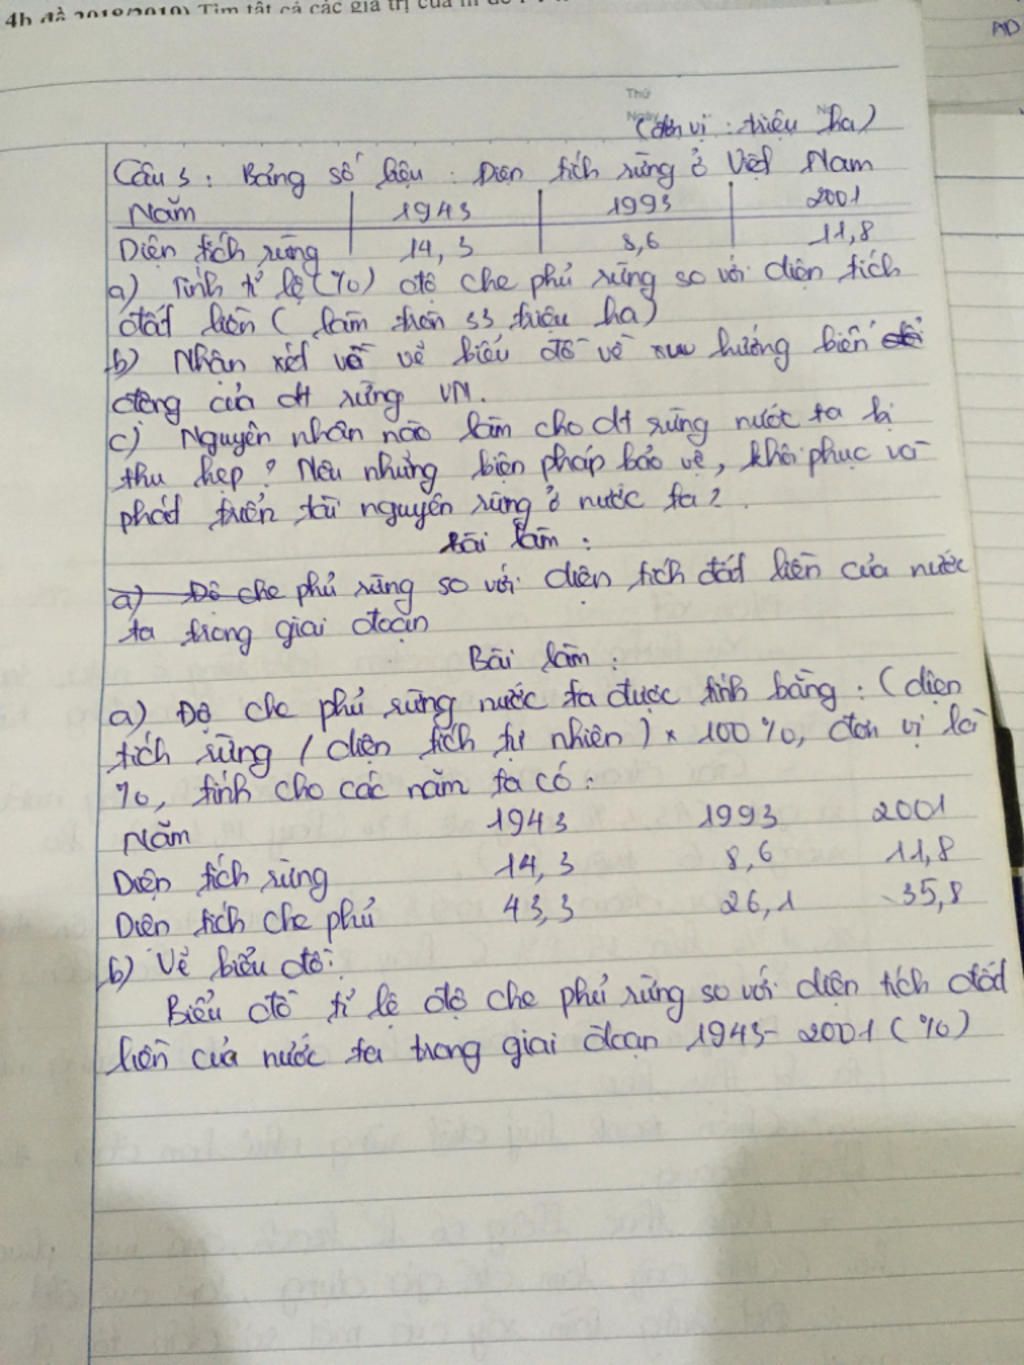 4b đề 2018/2019) Tìm tất cả các giá trị của m để
AD
Thứ
Ngày
(đơn vị : triệu ha)
Câu 3 : Bảng số liệu : Diện tích rừng ở Việt Nam
Năm 1943 1993 2001
Diện tích rừng 14,3 8,6 11,8
a) Tính tỉ lệ (%) độ che phủ rừng so với diện tích
đất liền ( làm tròn 33 triệu ha)
b) Nhận xét và vẽ biểu đồ về xu hướng biến
động của dt rừng VN.
c) Nguyên nhân nào làm cho dt rừng nước ta bị
thu hẹp ? Nêu những biện pháp bảo vệ, khôi phục và
phát triển tài nguyên rừng ở nước ta ? .
Bài làm :
a) Độ che phủ rừng so với diện tích đất liền của nước
ta trong giai đoạn
Bài làm :
a) Độ che phủ rừng nước ta được tính bằng : (diện
tích rừng / diện tích tự nhiên ) x 100 %, đơn vị là
%, tính cho các năm ta có :
Năm 1943 1993 2001
Diện tích rừng 14,3 8,6 11,8
Diện tích che phủ 43,3 26,1 35,8
b) Vẽ biểu đồ :
Biểu đồ tỉ lệ độ che phủ rừng so với diện tích đất
liền của nước ta trong giai đoạn 1943- 2001 (%)